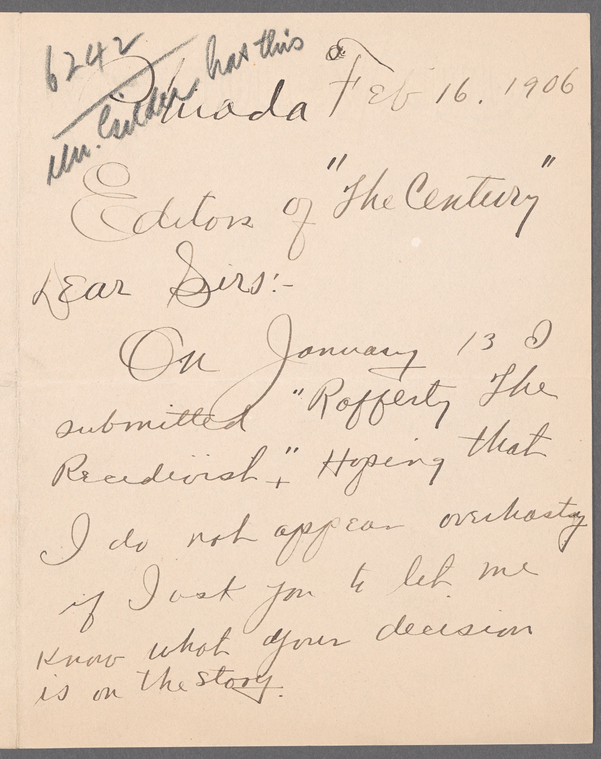 6242
Mr. Gilder has this
Omada Feb 16. 1906
Editors of "The Century"
Dear Sirs:-
On January 13 I
submitted "Rafferty The
Recedivist," Hoping that
I do not appear overhasty
if I ask you to let me
know what your decision
is on the story.